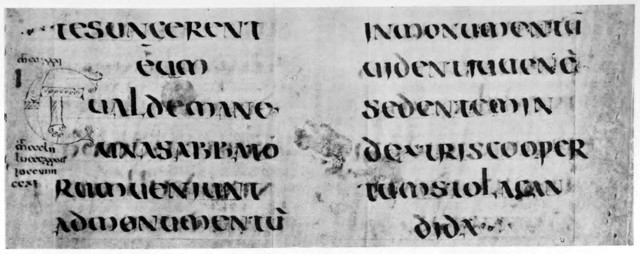 TESUNGERENT
EUM
ET
UALDEMANE
UNASABBATO
RUMUENIUNT
ADMONUMENTŪ
INMONUMENTŪ
UIDENTIUUENĒ
SEDENTEMIN
DEXTRISCOOPER
TUMSTOLACAN
DIDA